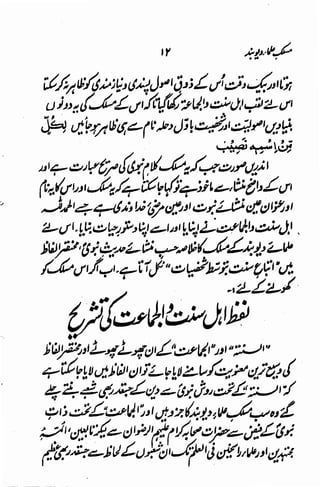 مسلک علماء دیوبند ۱۲
ہوتا اور بیک وقت اُس کے ذوقِ اصول پسندی و نیاز مندی کو ظاہر نہ کر سکتا
اس لئے لقب اہل سنت والجماعۃ رکھا گیا تاکہ اس کے مسلک کی یہ دونوں
بنیادیں اصولیت اور شخصیت باوّل دہلہ نام سے ہی ظاہر ہو جائیں لِکُلٍّ
مِّن اسْمِهٖ نَصِيْبٌ
اندریں صورت جب کہ یہ مسلک کلامِ نبوی کی صریح عبارت سے اور
اس کے واضح منشاء سے ماخوذ ہے تو کہا جا سکتا ہے کہ یہ مسلک اور اس کا یہ نام
اور عنوان عین منشائے نبوت اور عین مرضئ خداوندی ہے جسے الحمد للہ
اہل سنت والجماعت نے اپنایا اور اسے اپنا دستورِ حیات بنایا۔ اس لئے
علمائے دیوبند کے مسلک کا خلاصہ حسبِ منشائے حدیثِ نبویؐ، مختصر الفاظ
میں "اتباعِ سنت بتوسط شخصیات" نکل آتا ہے۔ اب اگر اس مسلک کو
کھولنے کے لئے۔
لفظ اہل سنت والجماعت کی تشریح
"السنۃ" اور "الجماعت" کے ان چھوٹے چھوٹے اور مختصر الفاظ
کی وسیع ترین معنویت کو سامنے لایا جائے تو ان الفاظ میں لایا جا سکتا ہے
کہ "السنۃ" کے تحت روشِ نبویؐ سے دین کے جسقدر بھی شعبے بنتے چلے
گئے وہ سب مسلک علماء دیوبند کا جزو ہیں اور "الجماعت" کے تحت ذاتِ
نبویؐ کے فیض سے حضرات صحابہ کرام علیہم الرضوان سے لیکر تابعین، ائمہ
مجتہدین اور علماء راسخین فی العلم تک ان شعبوں کے لحاظ سے جسقدر بھی عظیم